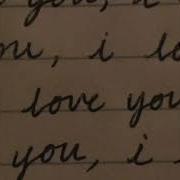 you, i
you, i lo
love you
you, i